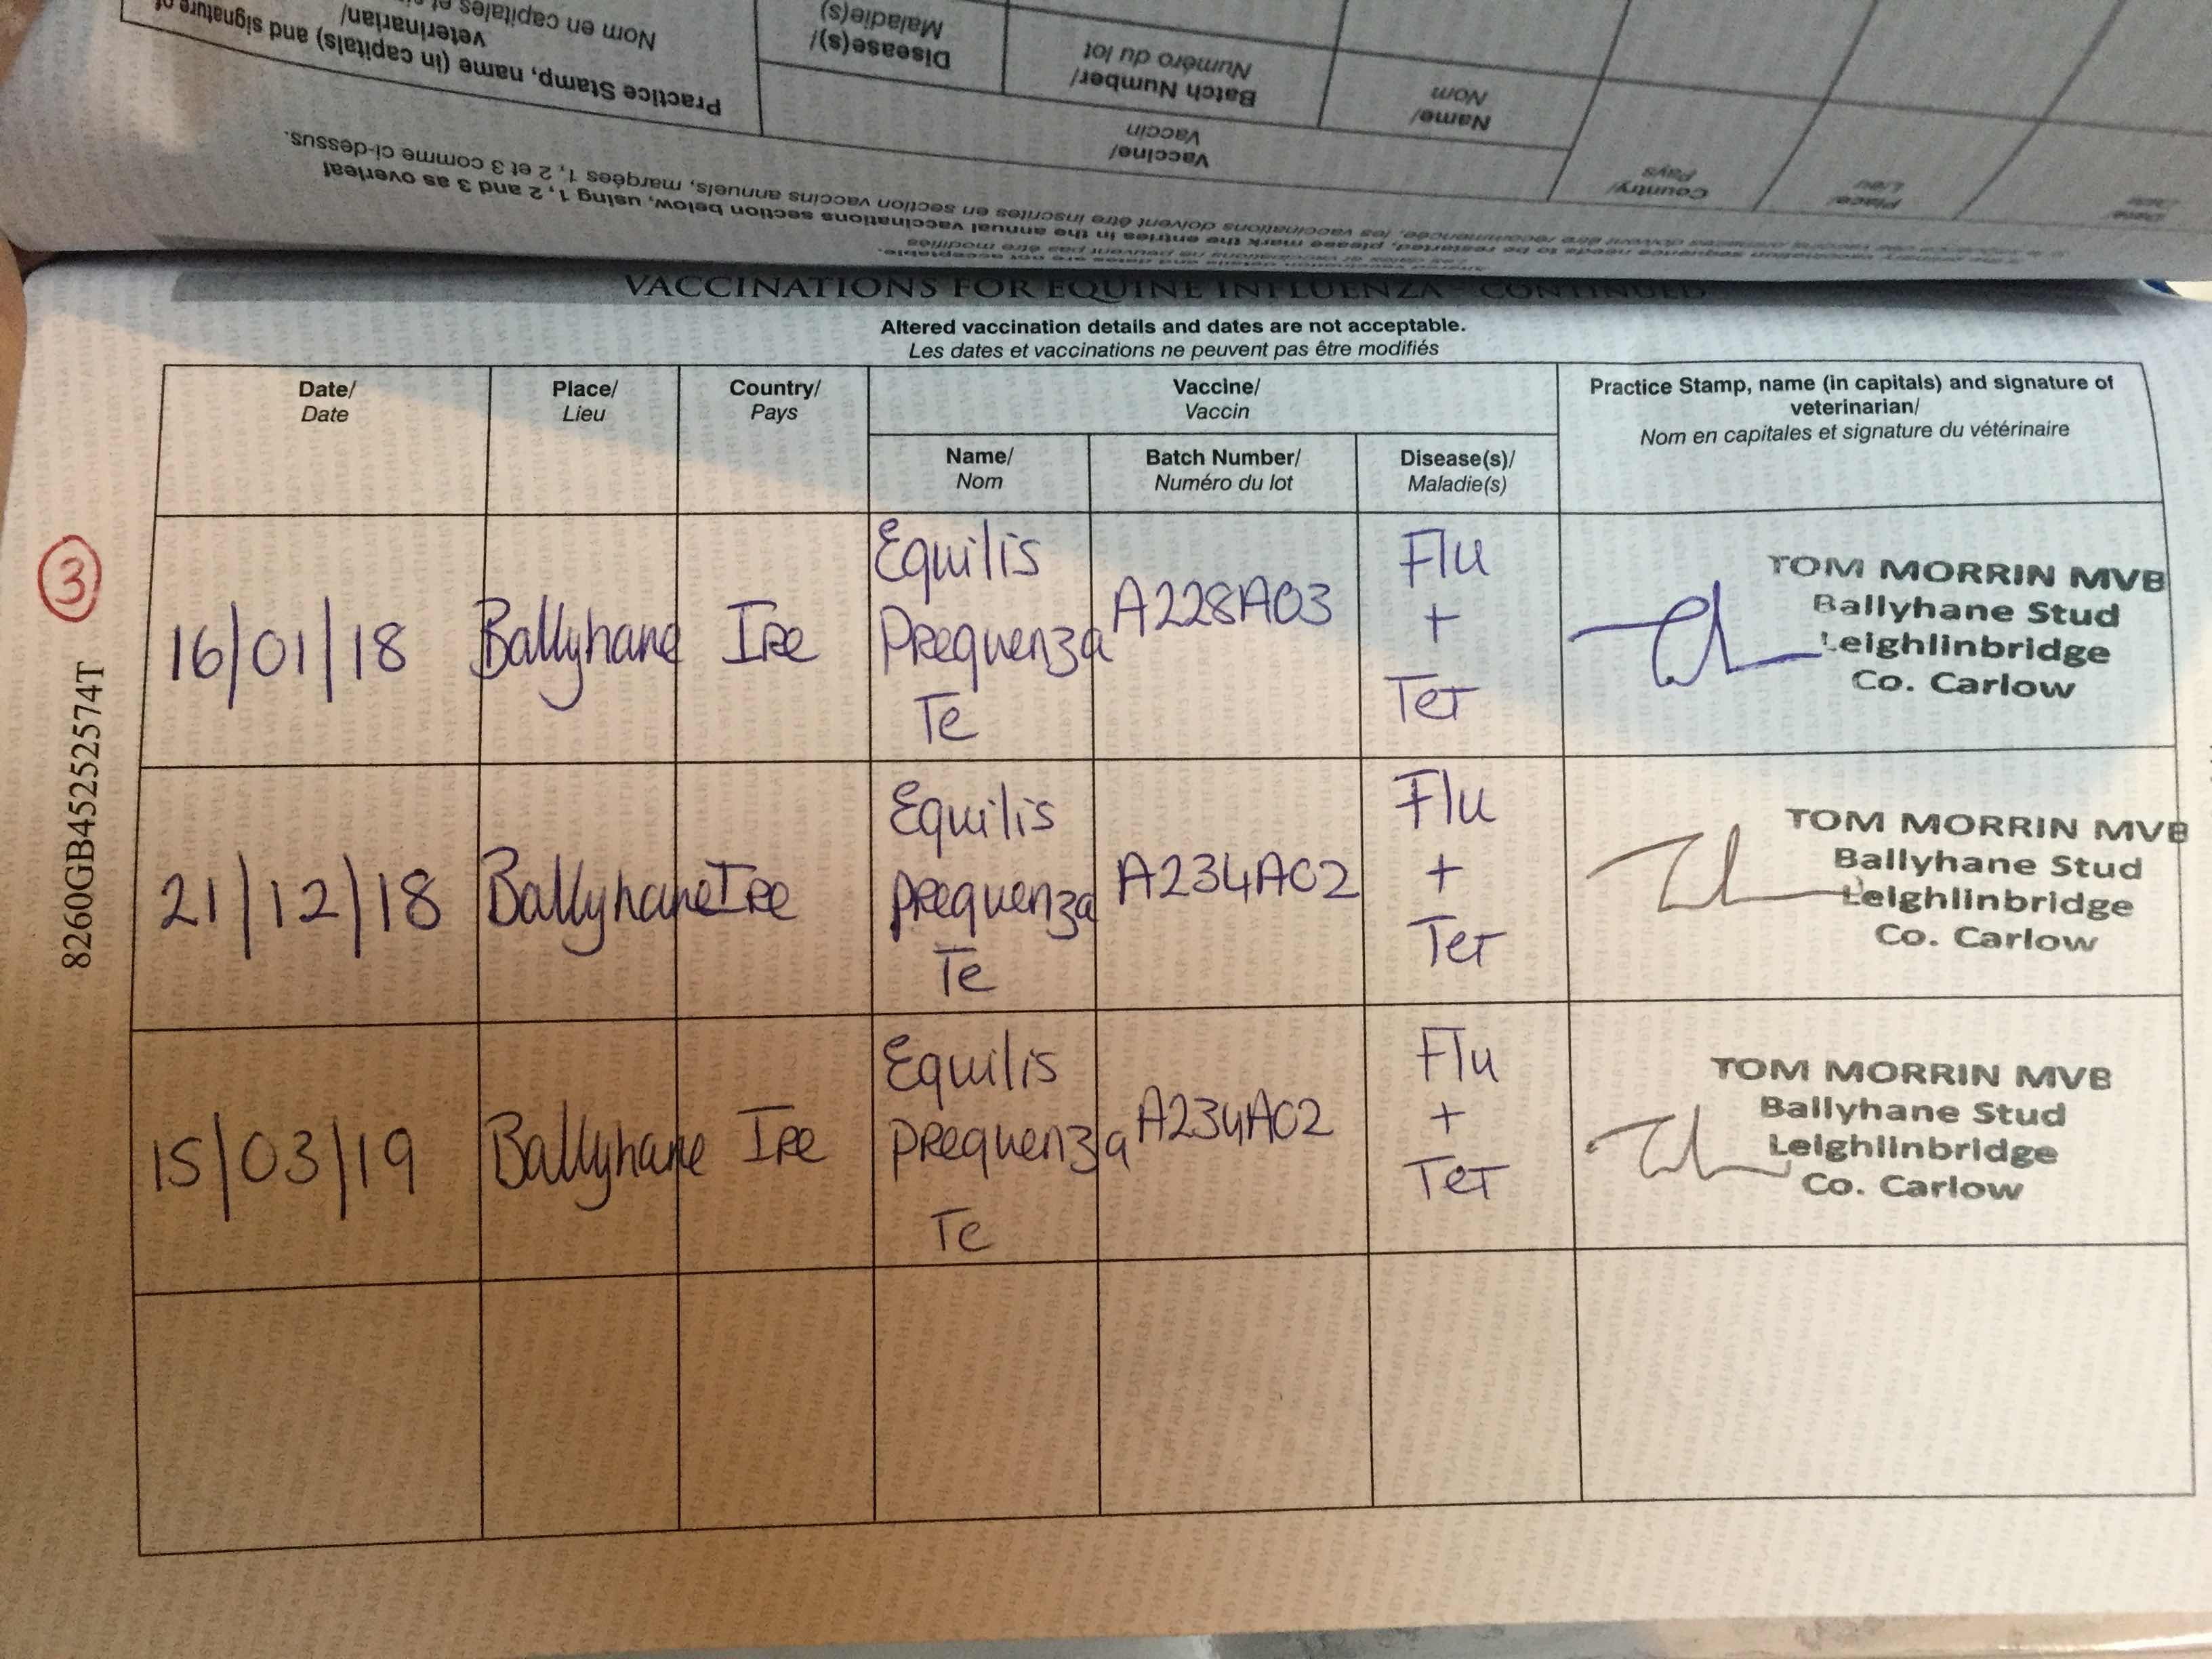 Practice Stamp, name (in capitals) and signature of
veterinarian/
Nom en capitales et
Disease(s)/
Maladie(s)
Batch Number/
Numéro du lot
Name/
Nom
Vaccine/
Vaccin
Country/
Pays
Place/
Lieu
Date/
The primary vaccination sequence needs to be restarted, please mark the entries in the annual vaccinations section below, using 1, 2 and 3 as overleaf
les vaccinations doivent être inscrites en section vaccins annuels, marqées 1, 2 et 3 comme ci-dessus.
Altered vaccination details and dates are not acceptable.
Les dates et vaccinations ne peuvent pas être modifiés
VACCINATIONS FOR EQUINE INFLUENZA - CONTINUED
Altered vaccination details and dates are not acceptable.
Les dates et vaccinations ne peuvent pas être modifiés
Date/
Date
Place/
Lieu
Country/
Pays
Vaccine/
Vaccin
Name/
Nom
Batch Number/
Numéro du lot
Disease(s)/
Maladie(s)
Practice Stamp, name (in capitals) and signature of
veterinarian/
Nom en capitales et signature du vétérinaire
3
8260GB45252574T
16/01/18
Ballyhane
Ire
Equilis
Prequenza
Te
A228A03
Flu
+
Tet
TOM MORRIN MVB
Ballyhane Stud
Leighlinbridge
Co. Carlow
21/12/18
Ballyhane
Ire
Equilis
Prequenza
Te
A234A02
Flu
+
Tet
TOM MORRIN MVB
Ballyhane Stud
Leighlinbridge
Co. Carlow
15/03/19
Ballyhane
Ire
Equilis
Prequenza
Te
A234A02
Flu
+
Tet
TOM MORRIN MVB
Ballyhane Stud
Leighlinbridge
Co. Carlow